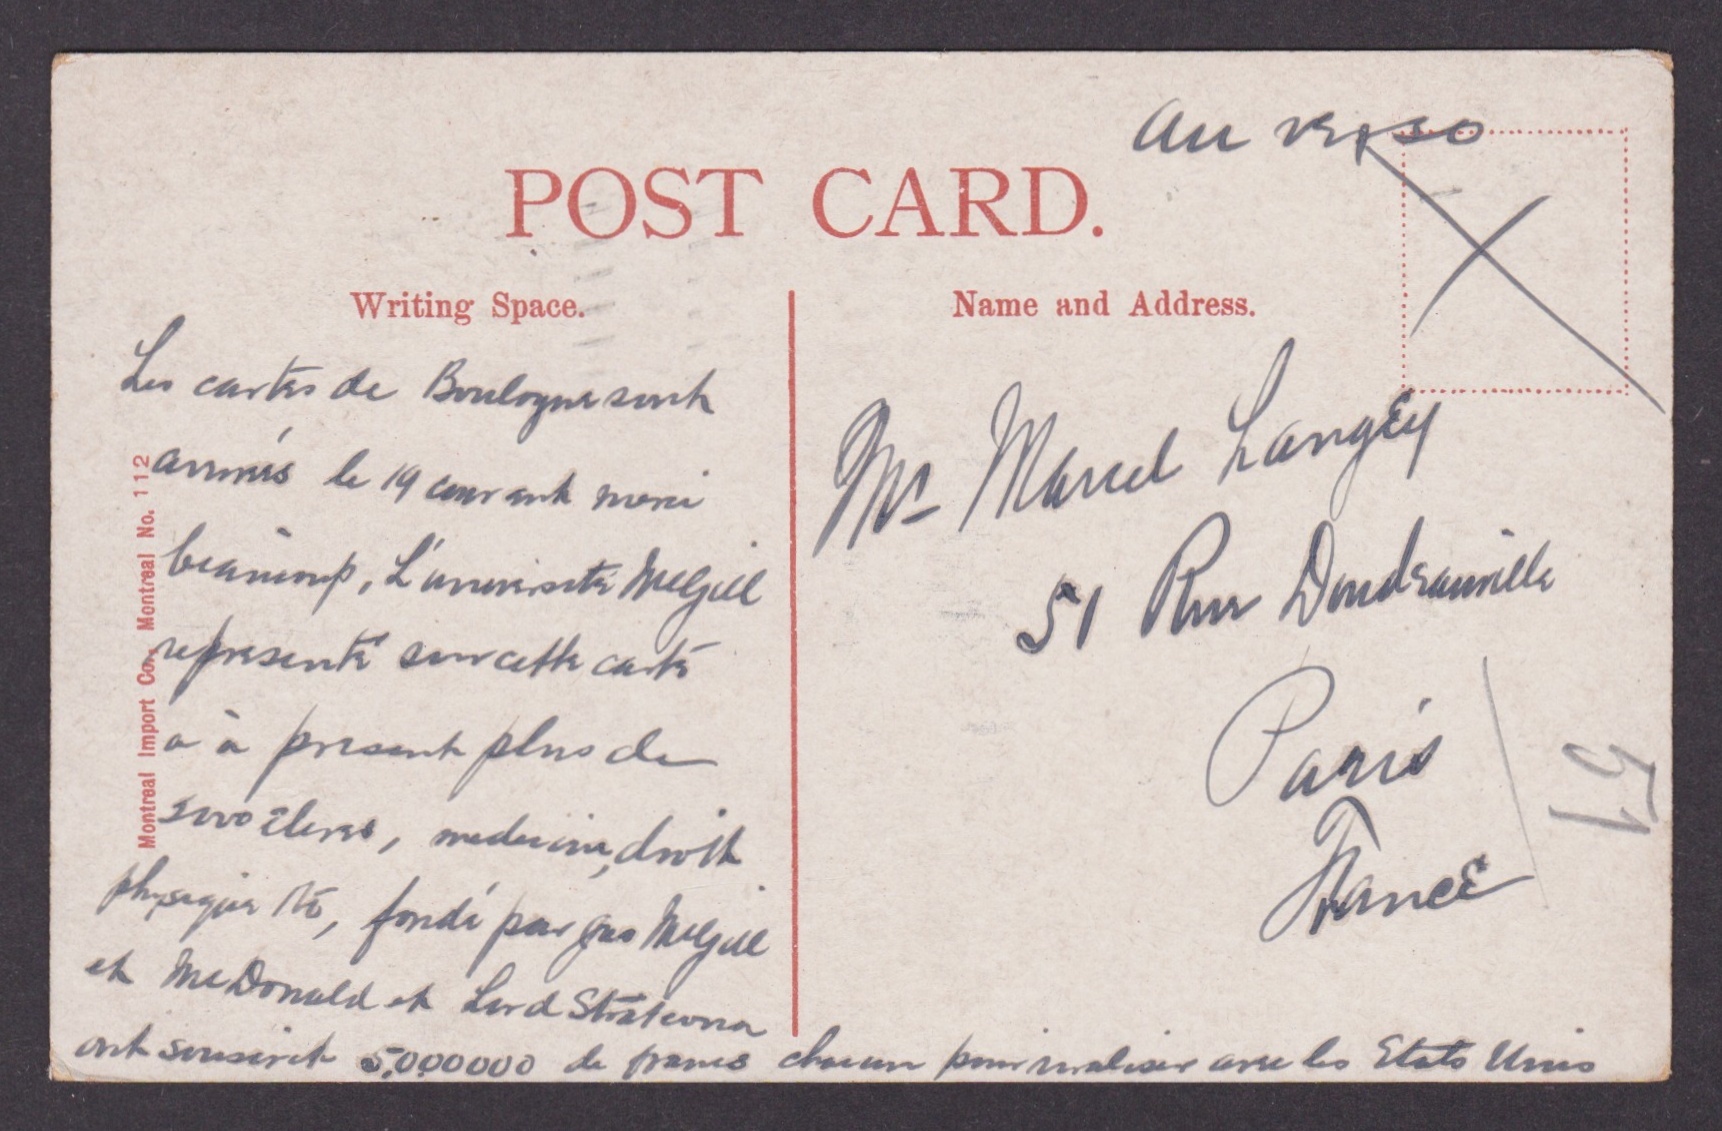 au verso
POST CARD.
Writing Space.
Name and Address.
Les cartes de Boulogne sont
arrivés le 19 courant merci
beaucoup, L'université McGill
represénté sur cette carte
a à présent plus de
élèves, medecine, droit
physique etc, fondé par Jas McGill
et McDonald et Lord Stratcona
ont souscrit 5,000000 de francs chacun pour rivaliser avec les Etats Unis
Mr Marcel Langey
51 Rue Doudeauville
Paris
France
51
Montreal Import Co., Montreal No. 112